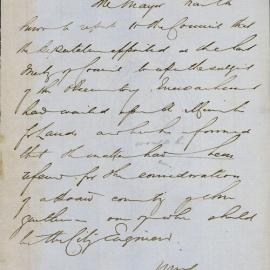 The Mayor has the
honor to report to the Council that
the Deputation appointed at the last
meeting of Council to upon the subject
of the
had waited upon the Minister
for Lands and was informed
that the matter had been
referred for the consideration
of a Board consisting of
gentlemen one of whom should
be the City Engineer.